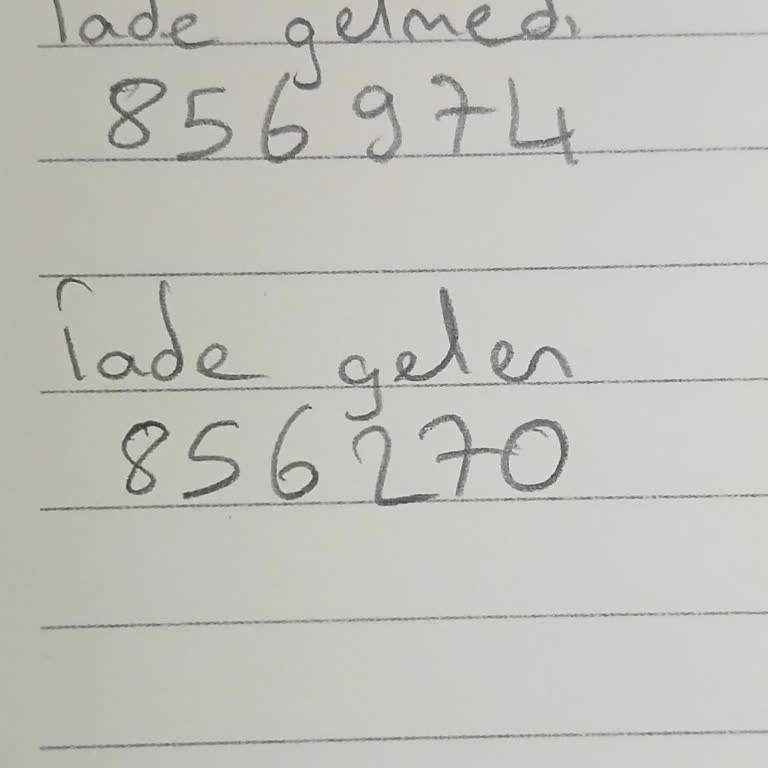 İade gelmedi
856974
İade gelen
856270